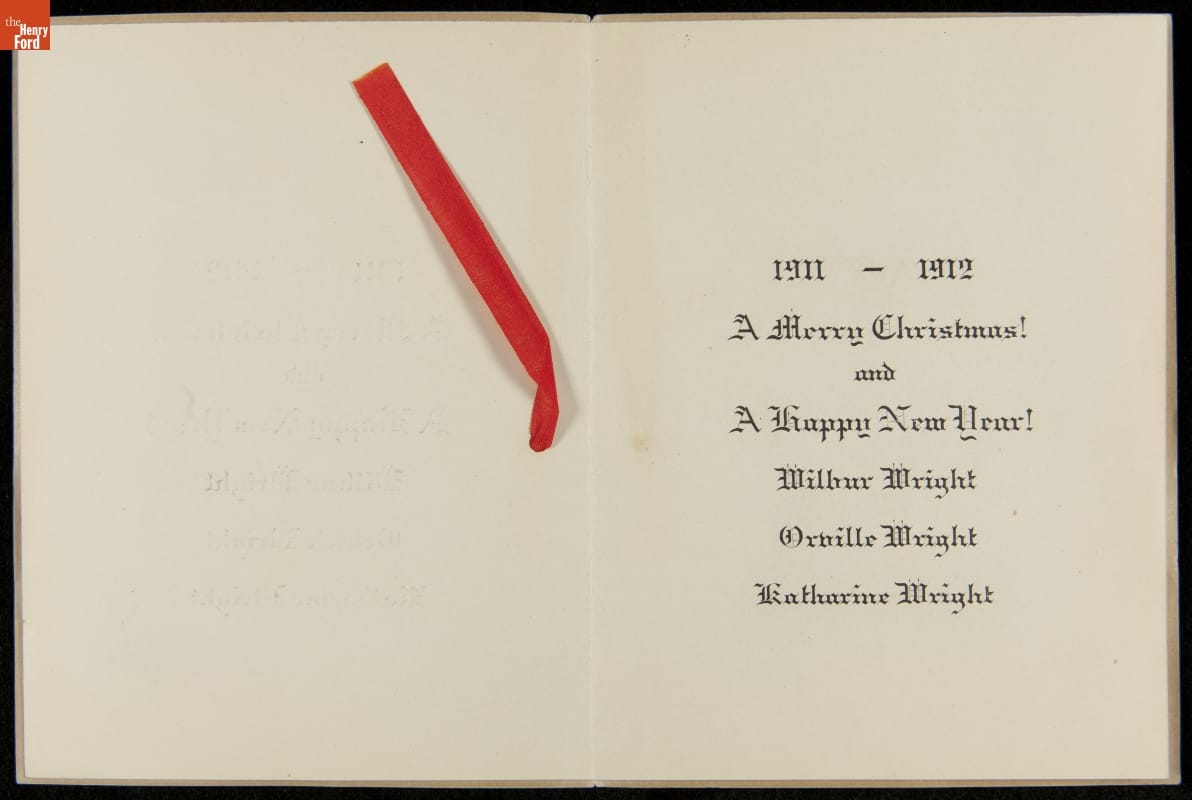 the
Henry
Ford
1911 — 1912
A Merry Christmas!
and
A Happy New Year!
Wilbur Wright
Orville Wright
Katharine Wright